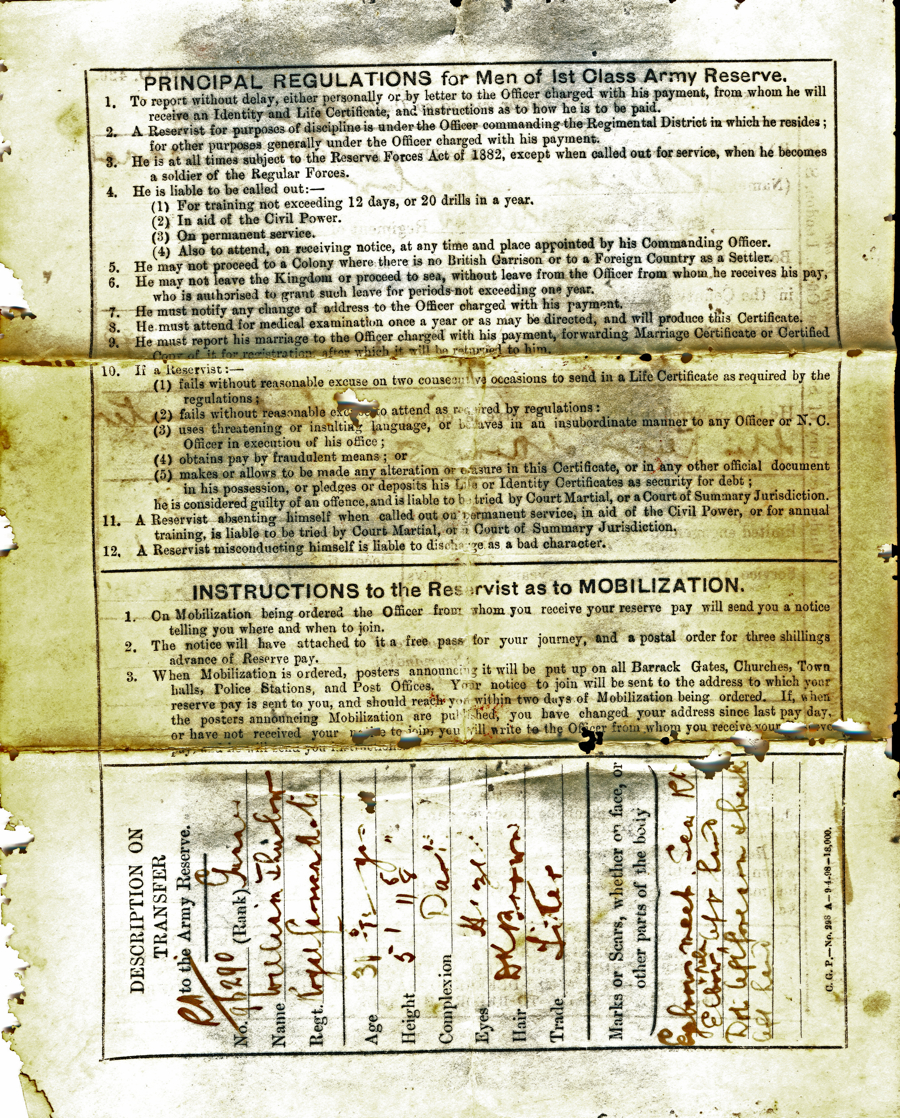 PRINCIPAL REGULATIONS for Men of 1st Class Army Reserve.
1. To report without delay, either personally or by letter to the Officer charged with his payment, from whom he will
receive an Identity and Life Certificate, and instructions as to how he is to be paid.
2. A Reservist for purposes of discipline is under the Officer commanding the Regimental District in which he resides;
for other purposes generally under the Officer charged with his payment.
3. He is at all times subject to the Reserve Forces Act of 1882, except when called out for service, when he becomes
a soldier of the Regular Forces.
4. He is liable to be called out:—
(1) For training not exceeding 12 days, or 20 drills in a year.
(2) In aid of the Civil Power.
(3) On permanent service.
(4) Also to attend, on receiving notice, at any time and place appointed by his Commanding Officer.
5. He may not proceed to a Colony where there is no British Garrison or to a Foreign Country as a Settler.
6. He may not leave the Kingdom or proceed to sea, without leave from the Officer from whom he receives his pay,
who is authorised to grant such leave for periods not exceeding one year.
7. He must notify any change of address to the Officer charged with his payment.
8. He must attend for medical examination once a year or as may be directed, and will produce this Certificate.
9. He must report his marriage to the Officer charged with his payment, forwarding Marriage Certificate or Certified
Copy of it for registration after which it will be returned to him.
10. If a Reservist:—
(1) fails without reasonable excuse on two consecutive occasions to send in a Life Certificate as required by the
regulations;
(2) fails without reasonable excuse to attend as required by regulations:
(3) uses threatening or insulting language, or behaves in an insubordinate manner to any Officer or N. C.
Officer in execution of his office;
(4) obtains pay by fraudulent means; or
(5) makes or allows to be made any alteration or erasure in this Certificate, or in any other official document
in his possession, or pledges or deposits his Life or Identity Certificates as security for debt;
he is considered guilty of an offence, and is liable to be tried by Court Martial, or a Court of Summary Jurisdiction.
11. A Reservist absenting himself when called out on permanent service, in aid of the Civil Power, or for annual
training, is liable to be tried by Court Martial, or a Court of Summary Jurisdiction.
12. A Reservist misconducting himself is liable to discharge as a bad character.
INSTRUCTIONS to the Reservist as to MOBILIZATION.
1. On Mobilization being ordered the Officer from whom you receive your reserve pay will send you a notice
telling you where and when to join.
2. The notice will have attached to it a free pass for your journey, and a postal order for three shillings
advance of Reserve pay.
3. When Mobilization is ordered, posters announcing it will be put up on all Barrack Gates, Churches, Town
halls, Police Stations, and Post Offices. Your notice to join will be sent to the address to which your
reserve pay is sent to you, and should reach you within two days of Mobilization being ordered. If, when
the posters announcing Mobilization are published, you have changed your address since last pay day,
or have not received your notice to join, you will write to the Officer from whom you receive your reserve
pay and he will send you instructions.
DESCRIPTION ON
TRANSFER
to the Army Reserve.
No. 9290 (Rank) Gunner
Name William
Regt.
Age 31
Height 5
Complexion Dark
Eyes
Hair DK Brown
Trade Fitter
Marks or Scars, whether on face, or
other parts of the body
Elbow left hand
Dot left forearm
left hand
C. G. P.—No. 298 A—9-4-98—18,000.